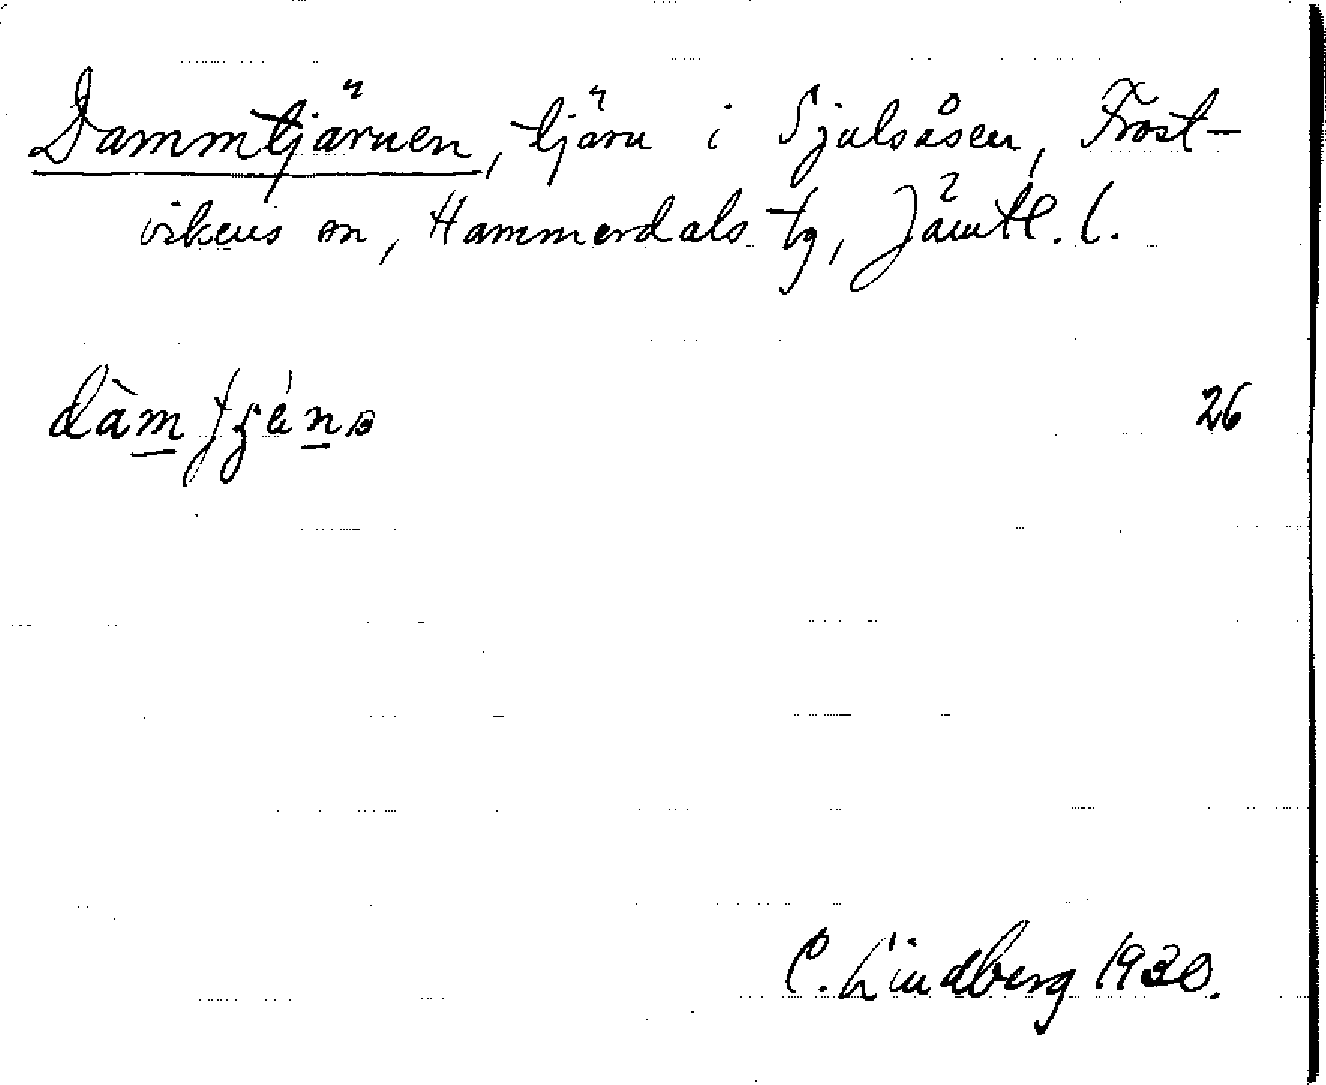 Dammtjärnen, tjärn i Sjulsåsen, Frost-
vikens sn, Hammerdals tg, Jämtl. l.
26
C. Lindberg 1930.